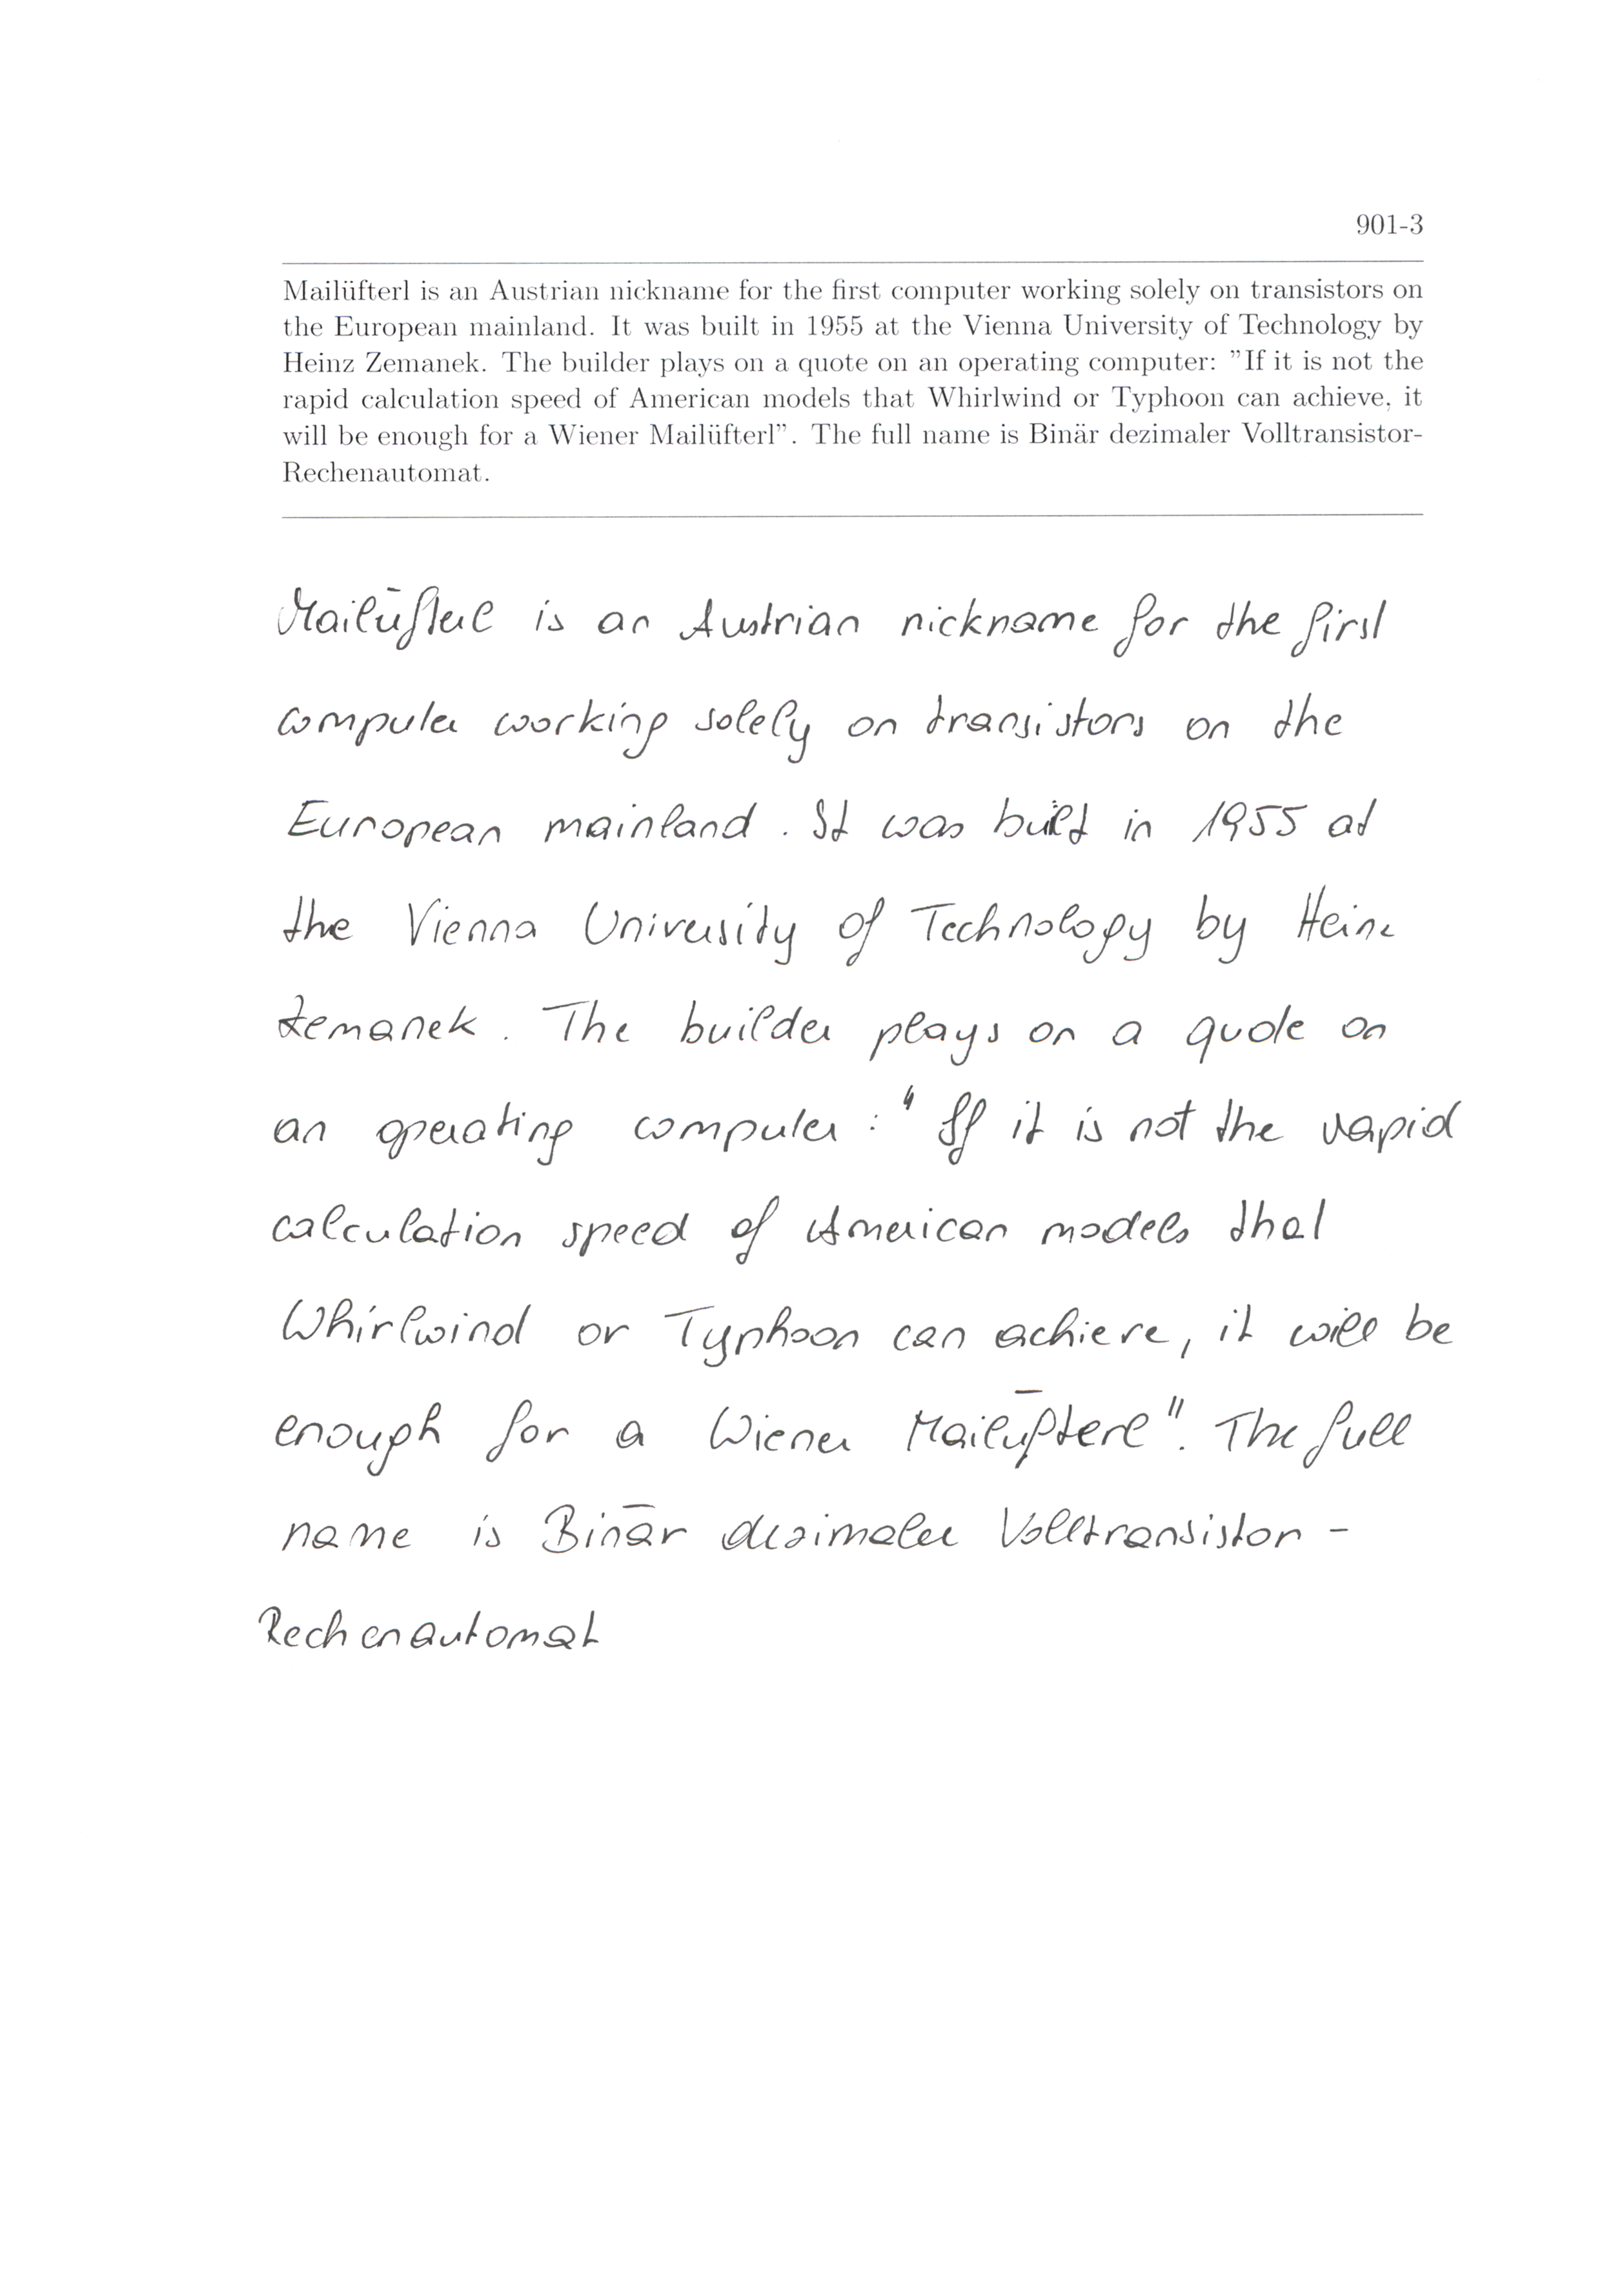 901-3
Mailüfterl is an Austrian nickname for the first computer working solely on transistors on
the European mainland. It was built in 1955 at the Vienna University of Technology by
Heinz Zemanek. The builder plays on a quote on an operating computer: "If it is not the
rapid calculation speed of American models that Whirlwind or Typhoon can achieve, it
will be enough for a Wiener Mailüfterl". The full name is Binär dezimaler Volltransistor-
Rechenautomat.
Mailüfterl is an Austrian nickname for the first
computer working solely on transistors on the
European mainland. It was built in 1955 at
the Vienna University of Technology by Heinz
Zemanek. The builder plays on a quote on
an operating computer: "If it is not the rapid
calculation speed of American models that
Whirlwind or Typhoon can achieve, it will be
enough for a Wiener Mailüfterl". The full
name is Binär dezimaler Volltransistor-
Rechenautomat